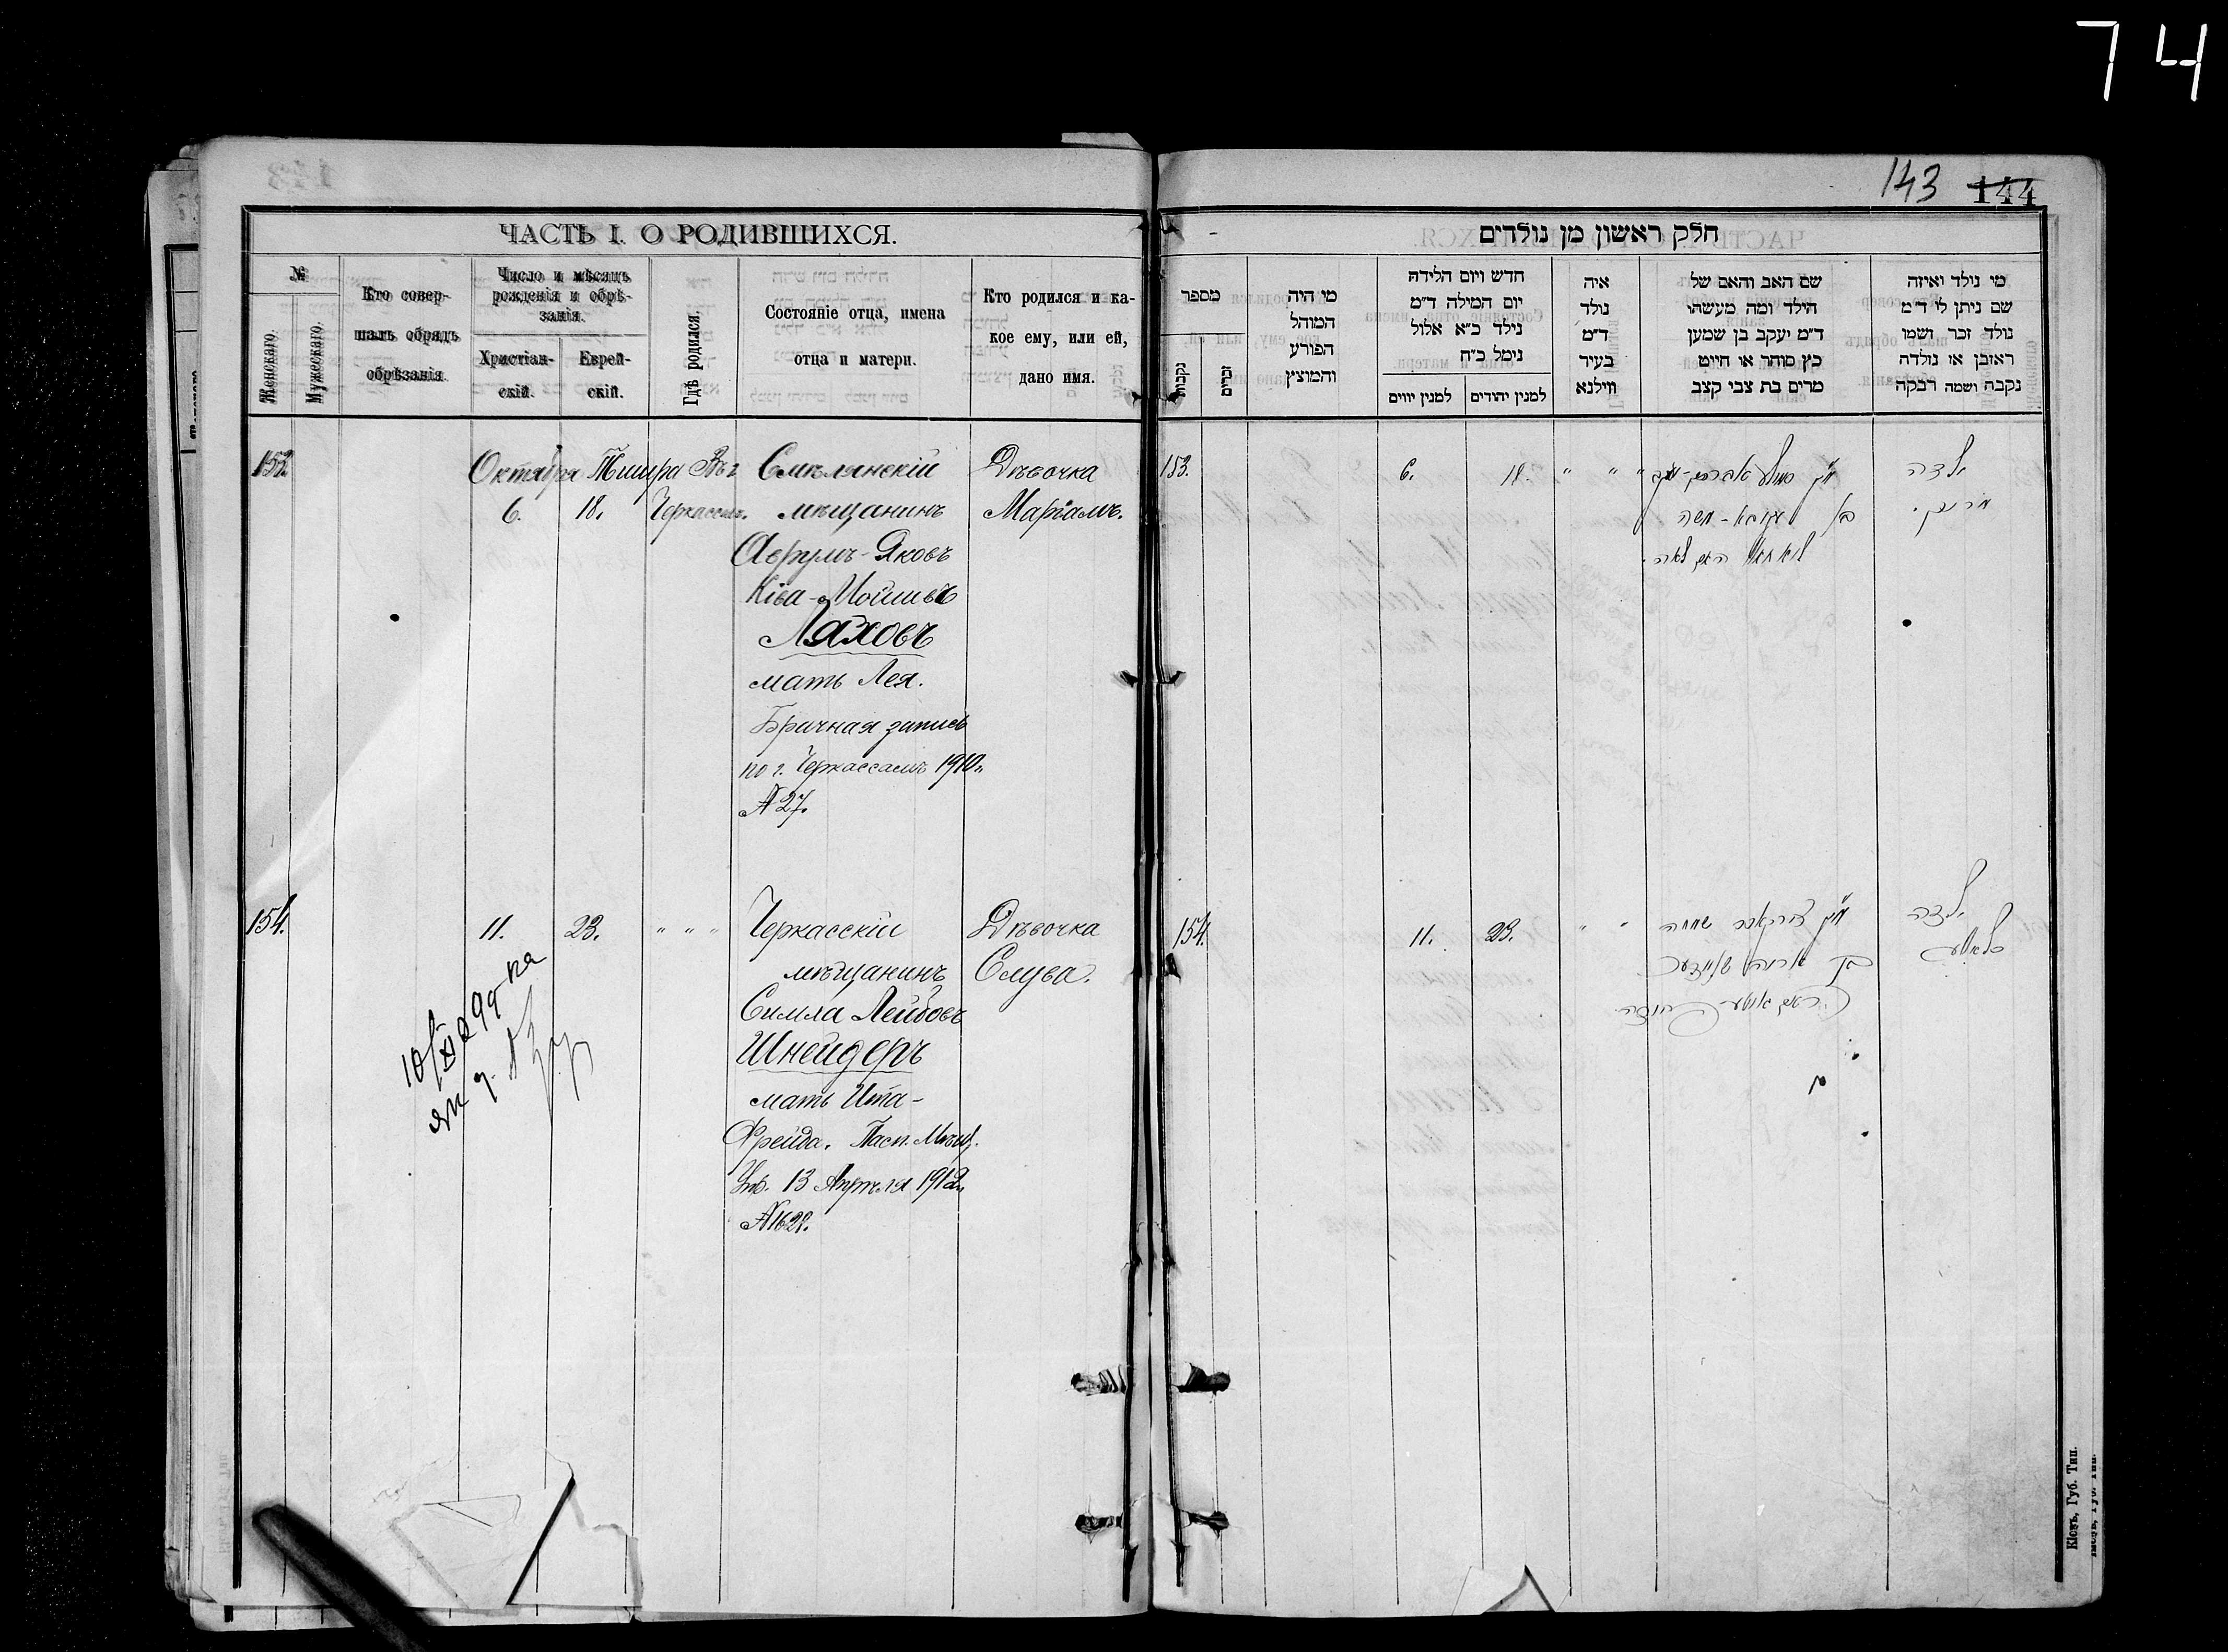 74
143 144
ЧАСТЬ I. О РОДИВШИХСЯ.
№
Женскаго.
Мужескаго.
Кто совер-
шалъ обрядъ
обрѣзанія.
Число и мѣсяцъ
рожденія и обрѣ-
занія.
Христіан-
скій.
Еврей-
скій.
Гдѣ родился.
Состояніе отца, имена
отца и матери.
Кто родился и ка-
кое ему, или ей,
дано имя.
153. Октября Тишра Въ г. Смѣлянскій Дѣвочка
6. 18. Черкассах. мѣщанинъ Маріамъ.
Аврумъ-Яковъ
Ківа-Мошк
Ляховъ
мать Лея.
Брачная запись
по г. Черкассамъ 1910.
№ 27.
154. 11. 23. " " " Черкасскій Дѣвочка
мѣщанинъ Слува.
Симха Лейбовъ
Шнейдеръ
мать Ита-
Фрейда. Пасп. Мѣщ.
Упр. 13 Апрѣля 1912.
№ 1628.
חלק ראשון מן נולדים
מספר
נקבות
זכרים
מי היה
המוהל
הפורע
והמוצץ
חדש ויום הלידה
יום המילה ד״מ
נילד כ״א אלול
נימל כ״ח
למנין יווים
למנין יהודים
איה
נולד
ד״מ
בעיר
ווילנא
שם האב והאם של
הילד ומה מעשהו
ד״מ יעקב בן שמעון
כץ סוחר או חייט
מרים בת צבי קצב
מי נולד ואיזה
שם ניתן לו ד״מ
נולד זכר ושמו
ראובן או נולדה
נקבה ושמה רבקה
153. 6. 18. " " " ילדה
מרים.
האם לאה.
154. 11. 23. " " ילדה
שמחה
בן שניידער
האם פריידא
Кіевъ, Губ. Тип.